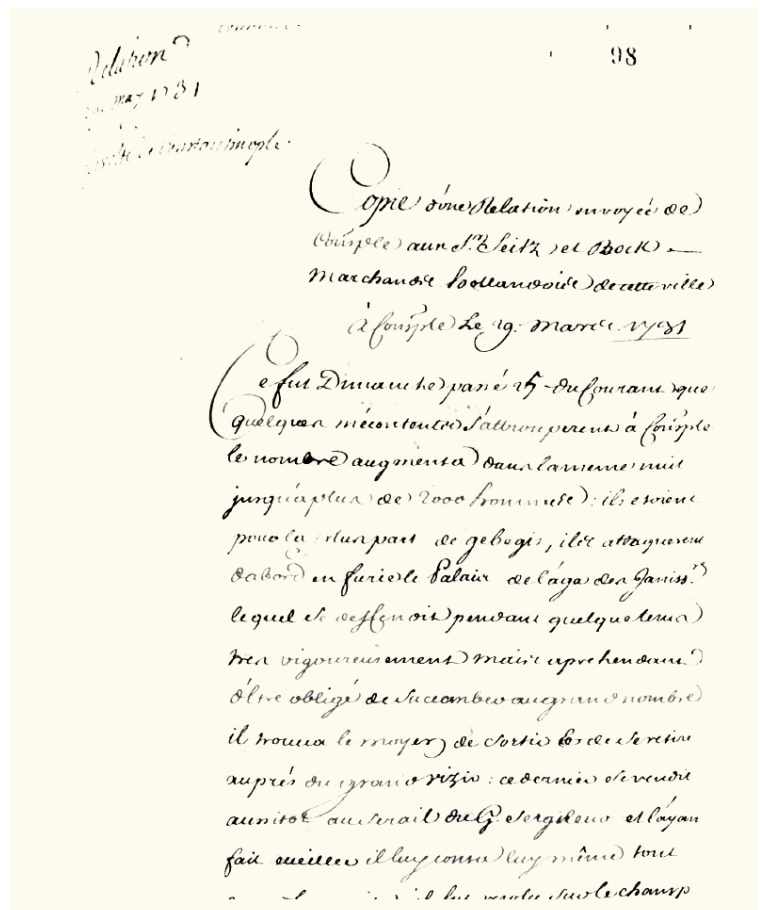 Relation
may 1731
de Constantinople
98
Copie d'une Relation envoyée de
Consple aux Srs Seitz et Bock
Marchands hollandois de cette ville
à Consple Le 29. Mars 1731
Ce fut Dimanche passé 25 du Courant que
quelques mécontents s'attrouperent à Consple
le nombre augmenta dans la meme nuit
jusqu'a plus de 2000 hommes : ils estoient
pour la plus part de gebegis, ils attaquerent
d'abord en furie le Palais de l'aga des Janiss.rs
lequel se deffendoit pendant quelque tems
tres vigoureusement mais aprehendant
d'être obligé de succomber au grand nombre
il trouva le moyen de sortir et de se retirer
auprés du grand vizir : ce dernier se rendit
aussitot au serail du G. Seigneur et l'ayan
fait eveiller il luy conta luy même tout
sur le champ